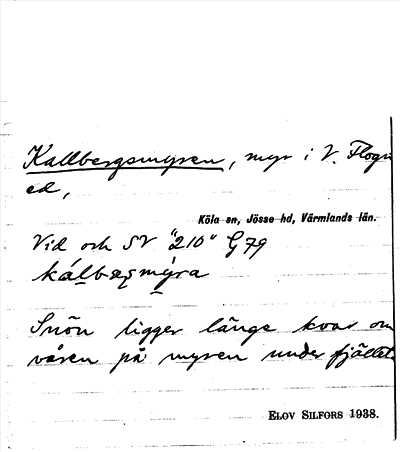 Kallbergsmyren, myr i V. Flogn
ed,
Köla sn, Jösse hd, Värmlands län.
Vid och SV "210" G79
Snön ligger länge kvar om
våren på myren under fjället
ELOV SILFORS 1938.